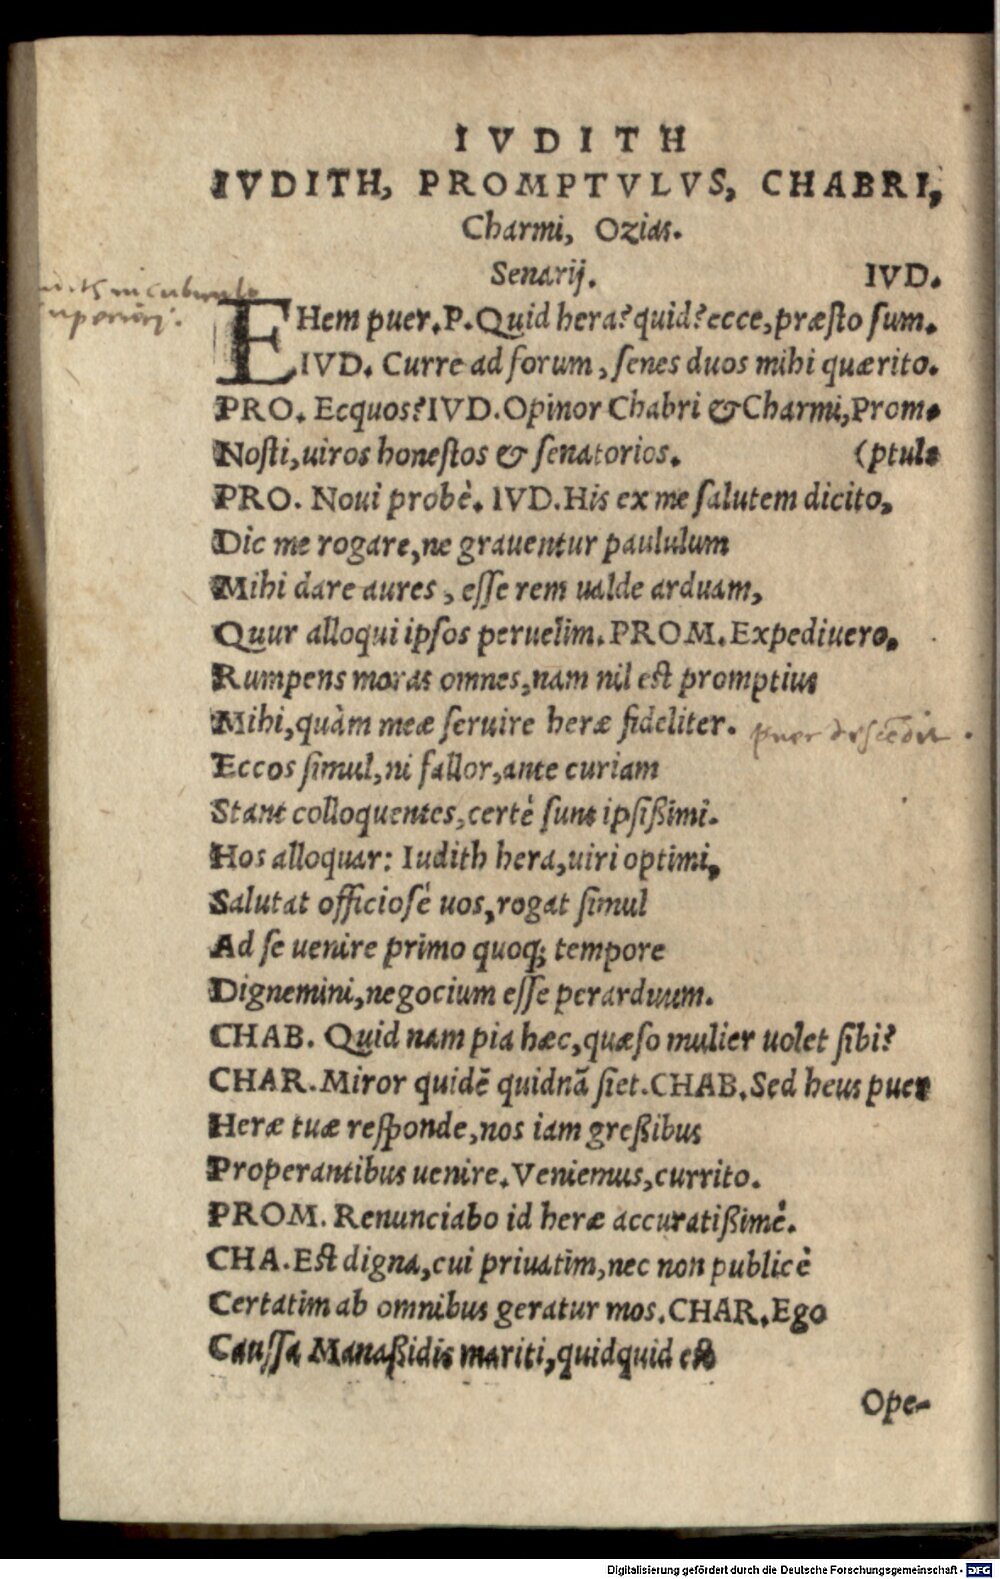 IVDITH
IVDITH, PROMPTVLVS, CHABRI,
Charmi, Ozias.
Senarij. IVD.
EHem puer. P. Quid hera? quid? ecce, præſto ſum.
IVD. Curre ad forum, ſenes duos mihi quærito.
PRO. Ecquos? IVD. Opinor Chabri & Charmi, Prom-
Noſti, uiros honeſtos & ſenatorios. (ptule
PRO. Noui probè. IVD. His ex me ſalutem dicito,
Dic me rogare, ne grauentur paululum
Mihi dare aures, eſſe rem ualde arduam,
Quur alloqui ipſos peruelim. PROM. Expediuero.
Rumpens moras omnes, nam nil eſt promptius
Mihi, quàm meæ ſeruire heræ fideliter.
puer descēdit.
Eccos ſimul, ni fallor, ante curiam
Stant colloquentes, certè ſunt ipſißimi.
Hos alloquar: Iudith hera, uiri optimi,
Salutat officioſè uos, rogat ſimul
Ad ſe uenire primo quoq; tempore
Dignemini, negocium eſſe perarduum.
CHAB. Quid nam pia hæc, quæſo mulier uolet ſibi?
CHAR. Miror quidē quidnā ſiet. CHAB. Sed heus puer
Heræ tuæ reſponde, nos iam greßibus
Properantibus uenire. Veniemus, currito.
PROM. Renunciabo id heræ accuratißimè.
CHA. Eſt digna, cui priuatim, nec non publicè
Certatim ab omnibus geratur mos. CHAR. Ego
Cauſſa Manaßidis mariti, quidquid eſt
Ope-
Digitalisierung gefördert durch die Deutsche Forschungsgemeinschaft - DFG